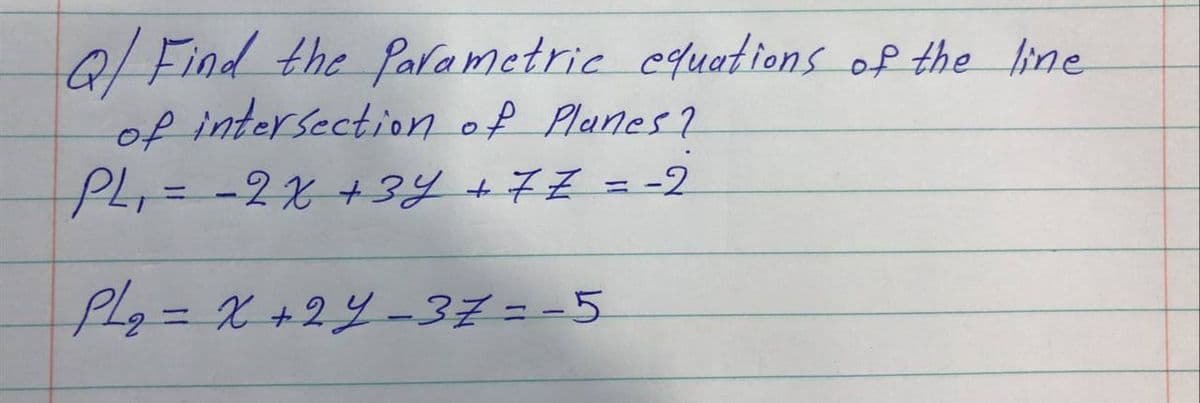 Q/ Find the Parametric equations of the line
of intersection of Planes?
PL₁ = -2x +3y +7Z = -2
PL₂ = x +2y -3Z = -5